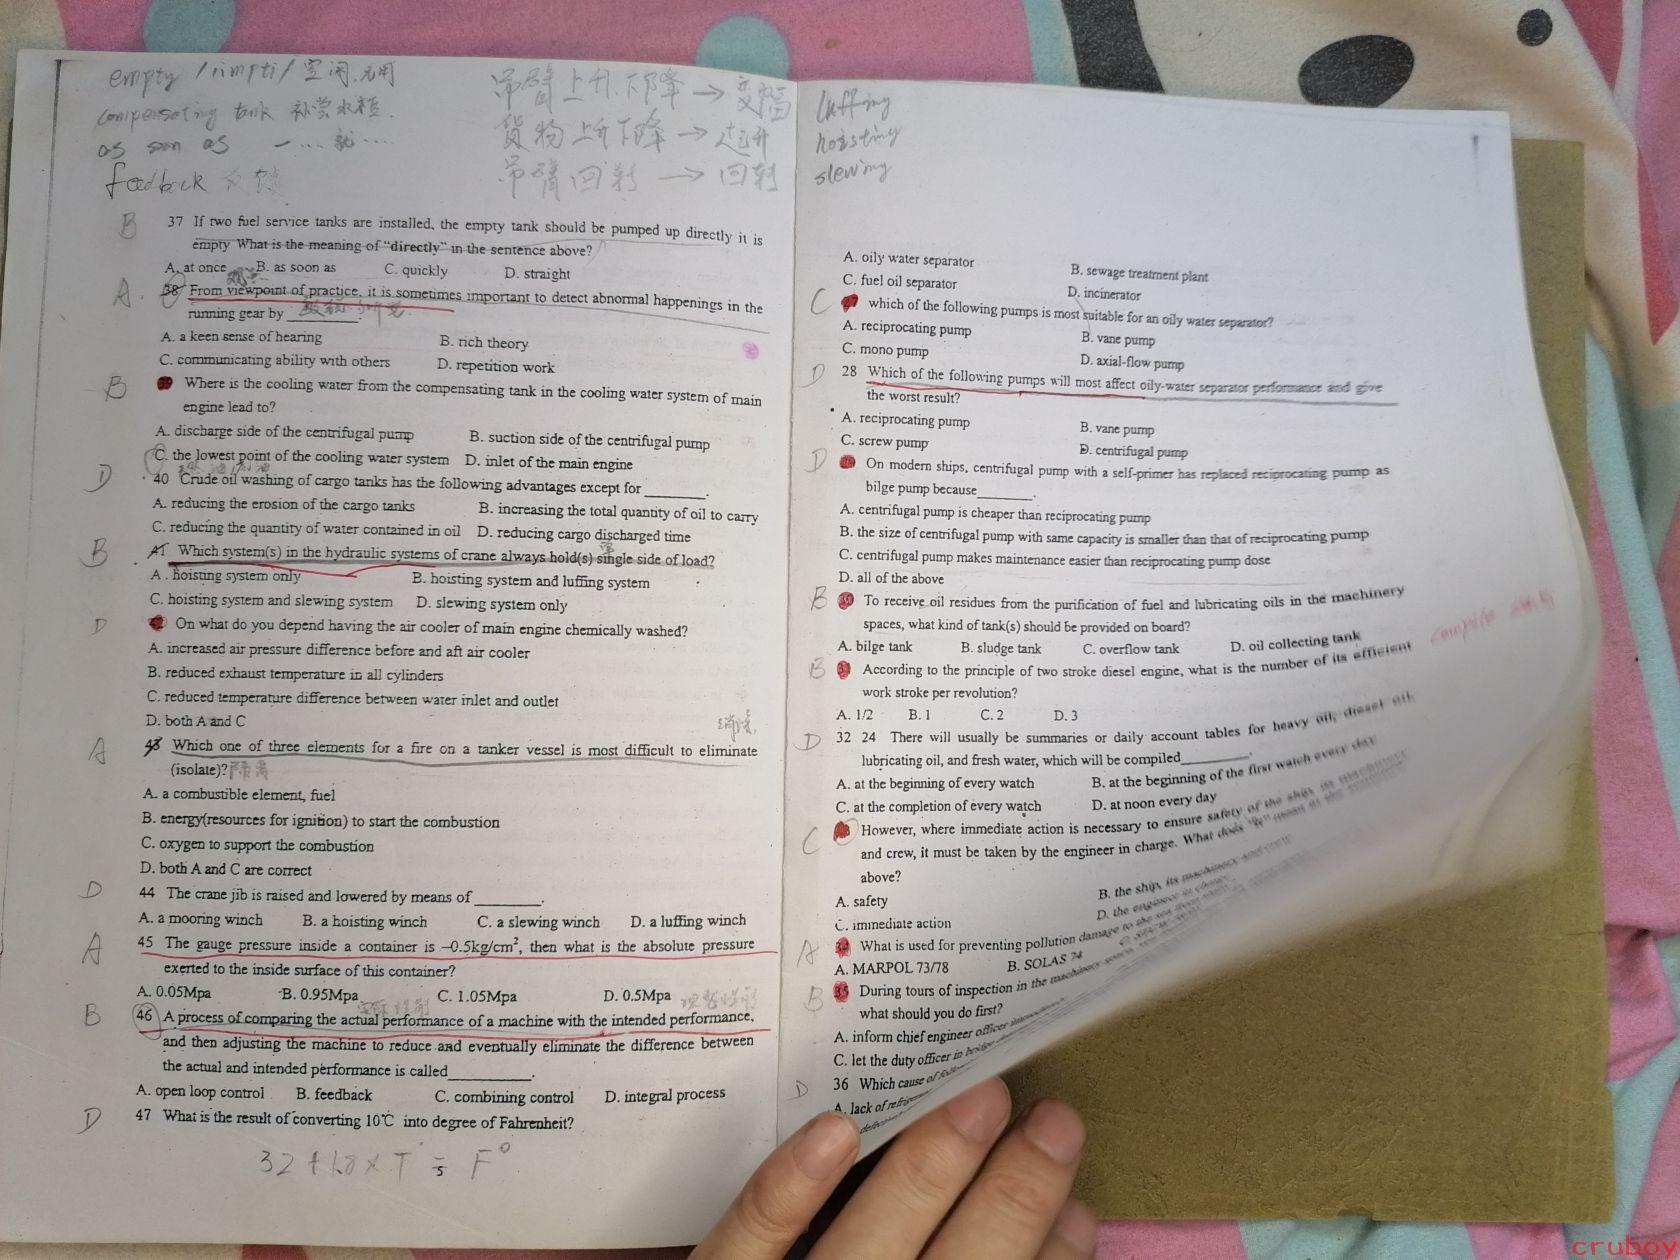 empty /impti/ 空闲.无用
compensating tank 补偿水柜.
as soon as 一…就…
feedback 反馈
吊臂上升.下降 → 变幅
货物上升下降 → 起升
吊臂回转 → 回转
B 37 If two fuel service tanks are installed, the empty tank should be pumped up directly it is
empty What is the meaning of "directly" in the sentence above?
A. at once B. as soon as C. quickly D. straight
A. 38 From viewpoint of practice, it is sometimes important to detect abnormal happenings in the
running gear by ________.
A. a keen sense of hearing B. rich theory
C. communicating ability with others D. repetition work
B 39 Where is the cooling water from the compensating tank in the cooling water system of main
engine lead to?
A. discharge side of the centrifugal pump B. suction side of the centrifugal pump
C. the lowest point of the cooling water system D. inlet of the main engine
D 40 Crude oil washing of cargo tanks has the following advantages except for ________.
A. reducing the erosion of the cargo tanks B. increasing the total quantity of oil to carry
C. reducing the quantity of water contained in oil D. reducing cargo discharged time
B 41 Which system(s) in the hydraulic systems of crane always hold(s) single side of load?
A . hoisting system only B. hoisting system and luffing system
C. hoisting system and slewing system D. slewing system only
D 42 On what do you depend having the air cooler of main engine chemically washed?
A. increased air pressure difference before and aft air cooler
B. reduced exhaust temperature in all cylinders
C. reduced temperature difference between water inlet and outlet
D. both A and C
消除.
A 43 Which one of three elements for a fire on a tanker vessel is most difficult to eliminate
(isolate)?隔离
A. a combustible element, fuel
B. energy(resources for ignition) to start the combustion
C. oxygen to support the combustion
D. both A and C are correct
D 44 The crane jib is raised and lowered by means of ________.
A. a mooring winch B. a hoisting winch C. a slewing winch D. a luffing winch
A 45 The gauge pressure inside a container is –0.5kg/cm², then what is the absolute pressure
exerted to the inside surface of this container?
A. 0.05Mpa B. 0.95Mpa C. 1.05Mpa D. 0.5Mpa
B 46 A process of comparing the actual performance of a machine with the intended performance,
and then adjusting the machine to reduce and eventually eliminate the difference between
the actual and intended performance is called________.
A. open loop control B. feedback C. combining control D. integral process
D 47 What is the result of converting 10℃ into degree of Fahrenheit?
32 + 1.8 × T = F°
luffing
hoisting
slewing
A. oily water separator B. sewage treatment plant
C. fuel oil separator D. incinerator
C 27 which of the following pumps is most suitable for an oily water separator?
A. reciprocating pump B. vane pump
C. mono pump D. axial-flow pump
D 28 Which of the following pumps will most affect oily-water separator performance and give
the worst result?
A. reciprocating pump B. vane pump
C. screw pump D. centrifugal pump
D 29 On modern ships, centrifugal pump with a self-primer has replaced reciprocating pump as
bilge pump because________.
A. centrifugal pump is cheaper than reciprocating pump
B. the size of centrifugal pump with same capacity is smaller than that of reciprocating pump
C. centrifugal pump makes maintenance easier than reciprocating pump dose
D. all of the above
B 30 To receive oil residues from the purification of fuel and lubricating oils in the machinery
spaces, what kind of tank(s) should be provided on board?
A. bilge tank B. sludge tank C. overflow tank D. oil collecting tank
B 31 According to the principle of two stroke diesel engine, what is the number of its efficient
work stroke per revolution?
A. 1/2 B. 1 C. 2 D. 3
D 32 24 There will usually be summaries or daily account tables for heavy oil, diesel oil,
lubricating oil, and fresh water, which will be compiled________.
A. at the beginning of every watch B. at the beginning of the first watch every day
C. at the completion of every watch D. at noon every day
C 33 However, where immediate action is necessary to ensure safety of the ship, its machinery
and crew, it must be taken by the engineer in charge. What does "it" mean in the
above?
A. safety B. the ship, its machinery and crew
C. immediate action D. the engineer in charge
A 34 What is used for preventing pollution damage to the sea
A. MARPOL 73/78 B. SOLAS 74
B 35 During tours of inspection in the machinery
what should you do first?
A. inform chief engineer officer
C. let the duty officer in bridge
D 36 Which cause of
A. lack of
cruboy